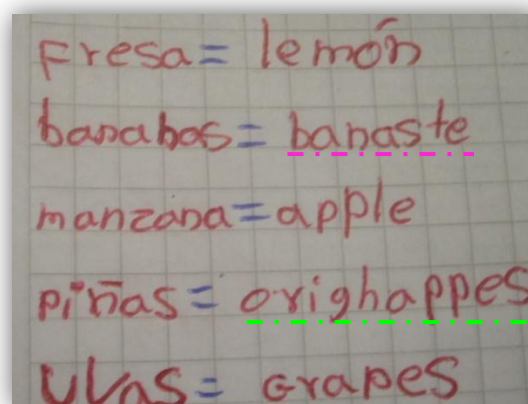 Fresa = lemón
banabas = banaste
manzana = apple
piñas = orighappes
uvas = Grapes